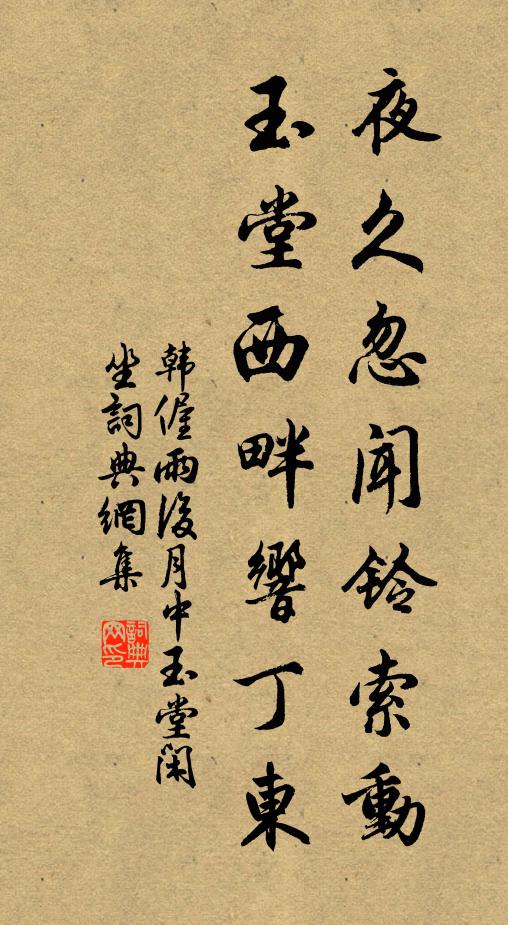 夜久忽闻鈴索動
玉堂西畔響丁東
韩偓雨後月中玉堂闲
坐詞典網集
詞典网印